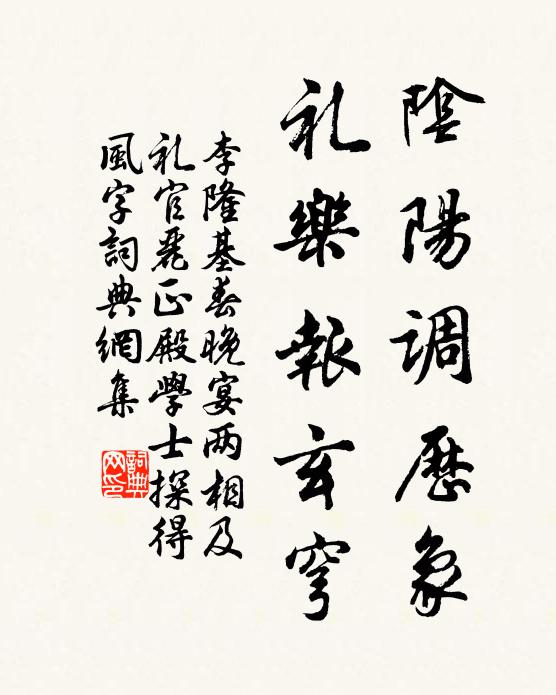 陰陽調歷象
礼樂報玄穹
李隆基春晚宴两相及
礼官麗正殿學士探得
風字詞典網集
詞典
网印